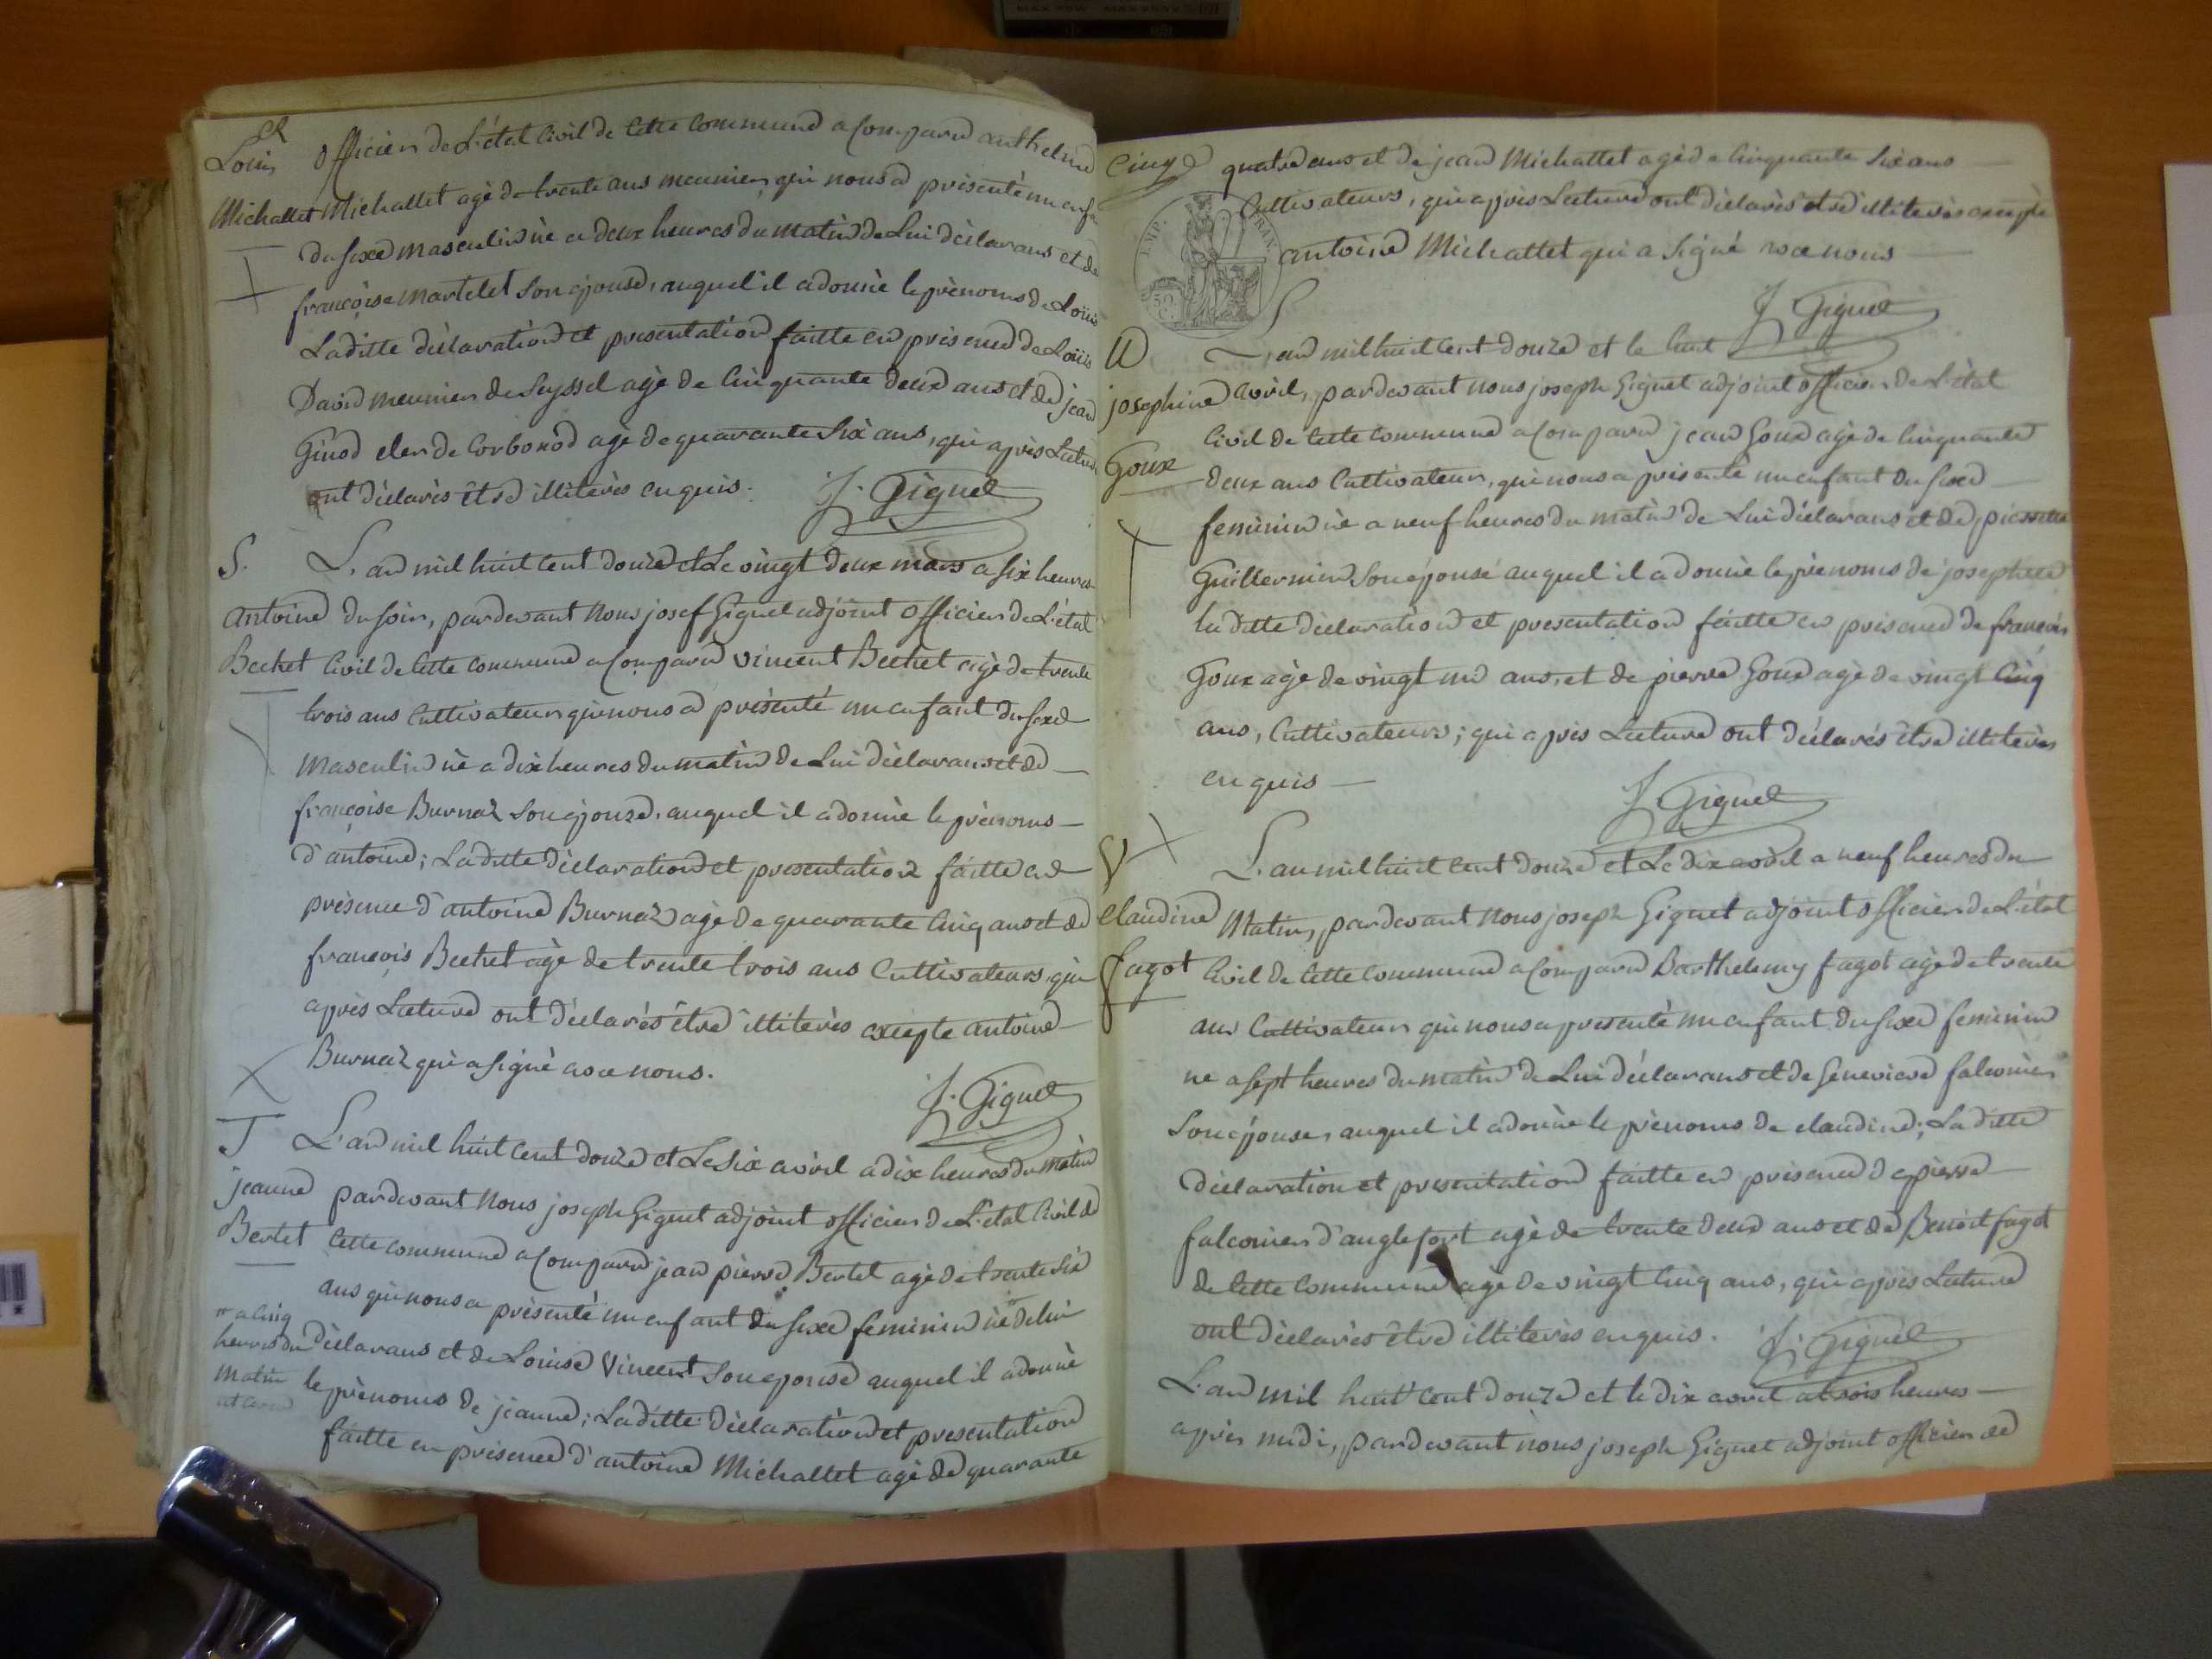 R
Louis
Michallet
officier de L'état Civil de Cette Commune a Comparu anthelme
Michallet agé de trente ans meunier, qui nous a présenté un enfa
du sexe masculin né a deux heures du matin de Lui déclarans et de
françoise Martelet Son épouse, auquel il a donné le prénoms de Loüis
Laditte déclaration et presentation faitte en présence de Loüis
David meunier de Seyssel agé de Cinquante deux ans et de jean
Ginod de Corbonod agé de quarante Six ans, qui après Lecture
ont déclarés être illiterés enquis. J. Giguet
S.
Antoine
Bechet
L'an mil huit Cent douze et Le vingt deux mars a Six heures
du Soir, pardevant Nous josef Giguet adjoint officier de L'état
Civil de Cette Commune a Comparu Vincent Bechet agé de trente
trois ans Cultivateur qui nous a présenté un enfant du sexe
Masculin né a dix heures du matin de Lui déclarans et de
françoise Burnaz Son épouse, auquel il a donné le prénoms
d'antoine; Laditte déclaration et presentation faitte en
présence d'antoine Burnaz agé de quarante Cinq ans et de
françois Bechet agé de trente trois ans Cultivateurs, qui
après Lecture ont déclarés être illiterés excepte antoine
Burnaz qui a Signé avec nous.
J. Giguet
T
jeanne
Bertet
L'an mil huit Cent douze et Le Six avril a dix heures du matin
pardevant Nous joseph Giguet adjoint officier de L'etat Civil de
Cette Commune a Comparu jean pierre Bertet agé de trente Six
ans qui nous a présenté un enfant du sexe feminin né de lui
a Cinq
heures du
Matin
déclarans et de Louise Vincent Son épouse auquel il a donné
le prénoms de jeanne; Laditte déclaration et presentation
faitte en présence d'antoine Michallet agé de quarante
Cinq
quatre ans et de jean Michallet agé de Cinquante Six ans
Cultivateurs, qui après Lecture ont déclarés etre illiterés excepte
antoine Michallet qui a Signé avec nous
J. Giguet
EMP. FRAN.
50 C.
U
josephine
Goux
L'an mil huit Cent douze et le huit
avril, pardevant nous joseph Giguet adjoint officier de L'état
Civil de Cette Commune a Comparu jean Goux agé de Cinquante
deux ans Cultivateur, qui nous a présenté un enfant du sexe
feminin né a neuf heures du matin de Lui déclarans et de, pierrette
Guillermin Son épouse auquel il a donné le prénoms de josephine
la ditte déclaration et presentation faitte en présence de françois
Goux agé de vingt un ans, et de pierre Goux agé de vingt Cinq
ans, Cultivateurs; qui après Lecture ont déclarés être illiterés
enquis
J. Giguet
V
Claudine
fagot
L'an mil huit Cent douze et Le dix avril a neuf heures du
Matin, pardevant Nous joseph Giguet adjoint officier de L'état
Civil de Cette Commune a Comparu Barthelemy fagot agé de trente
ans Cultivateur qui nous a presenté un enfant du sexe feminin
né a Sept heures du matin de Lui déclarans et de Genevieve falconier
Son épouse, auquel il a donné le prénoms de claudine; La ditte
déclaration et presentation faitte en présence de pierre
falconier d'anglefort agé de trente deux ans et de Benoit fagot
de Cette Commune agé de vingt Cinq ans, qui après Lecture
ont déclarés être illiterés enquis. J. Giguet
L'an mil huit Cent douze et le dix avril a trois heures
après midi, pardevant nous joseph Giguet adjoint officier de